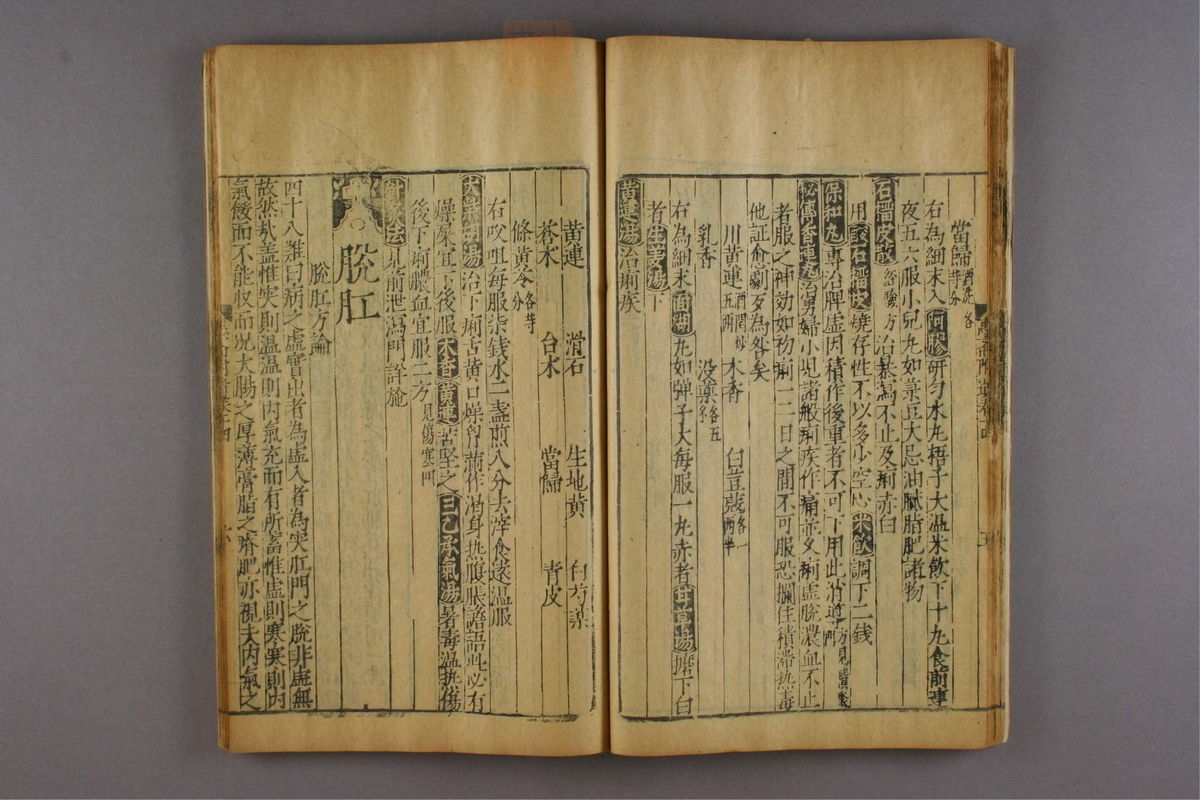 當歸
右為細末入阿膠研勻水丸梧子大溫米飲下十九食前連
夜五六服小兒丸如菉豆大忌油膩脂肥諸物
石榴皮散 經驗方 治暴瀉不止及痢赤白
用 石榴皮燒存性不以多少空心米飲調下二錢
保和丸專治脾虛因積作後重者不可下用此消導 方見
秘傳香連丸 男婦小児諸般痢疾作痛並久痢虛脫濃血不止
者服之神効如初痢一二日之間不可服恐攔住積滯热毒
他証愈劇歹為咎矣
川黄連 木香 白荳蔻
乳香 没藥
右為細末 丸如彈子大每服一丸赤者甘草湯 下白
者生姜湯下
黄連湯治痢疾
黄連 滑石 生地黄 白芍藥
蒼朮 白朮 當歸 青皮
條黄芩
右㕮咀每服 錢水二盞煎八分去滓食遠温服
大柴胡湯治下痢舌黄口燥胷滿作渴身热腹脹譫語此必有
燥屎宜下後服木香黄連苦堅之三乙承氣湯暑毒温热傷
後下痢膿血宜服二方 見傷寒門
針灸法見前泄瀉門詳施
脫肛
脫肛方論
四十八難曰病之虛實出者為虛入者為实肛門之脫非虛無
故然矣盖惟实則温温則内氣充而有所蓄惟虛則寒寒則内
氣餒而不能收而况大腸之厚薄膏脂之瘠肥亦視夫内氣之